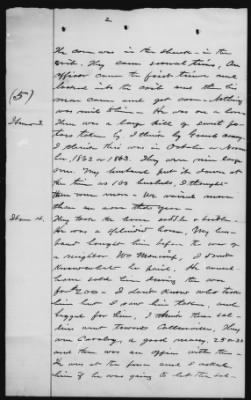 2
The corn was in the shuck - in the
crib. They came several times, An
officer came the first time and
looked into the crib and then his
men came and got corn - Nothing
was said to him. He was an
(5)
Item 3.
There was a large field of sweet po-
tatoes taken by I think by Grant's army
I think this was in October or Novem-
ber, 1862 or 1863. They were nice large
ones. My husband put it down at
the time as 100 bushels, I thought
there were more - We raised more
than we ate that year -
Item 4.
They took the horse, saddle & bridle -
He was a splendid horse. My hus-
band bought him before the war of
a neighbor Wm
know what he paid. He could
have sold him during the war
for $200. - I don't know who took
him but I saw him taken, and
begged for him. I think these sol-
diers went towards Collierville, They
were Cavalry, a good many, 25 or 30
and there was an officer with them -
He was at the fence and I asked
him if he was going to let the sol-